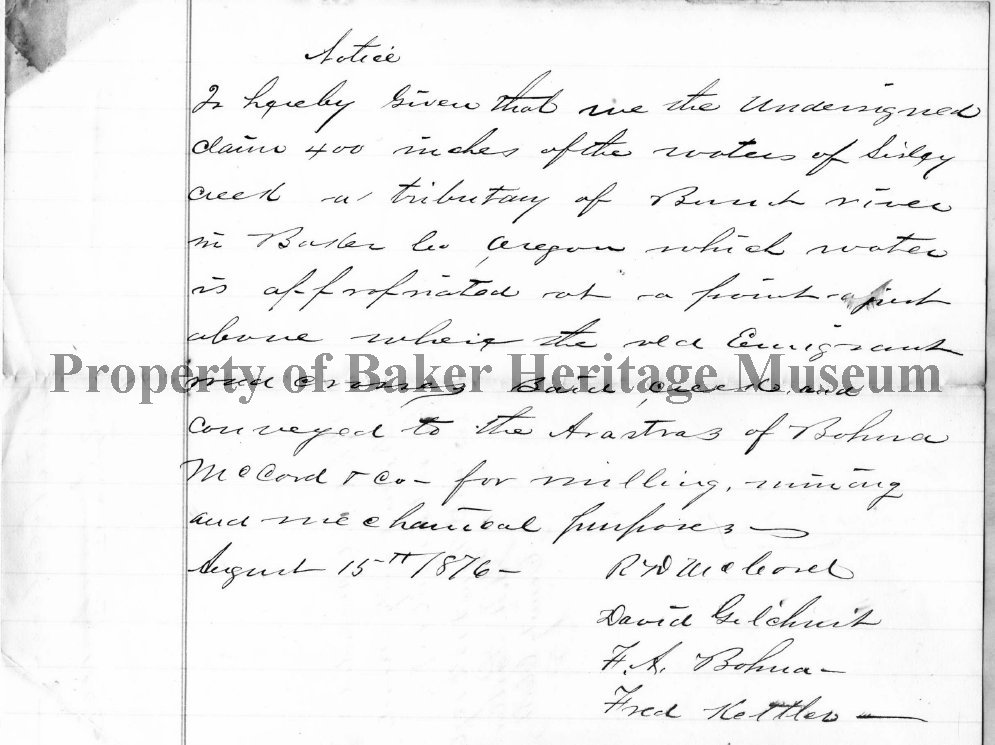 Notice
Is hereby Given that we the Undersigned
claim 400 inches of the waters of Sisley
creek a tributary of Burnt river
in Baker Co Oregon which water
is appropriated at a point just
above where the old Emigrant
Property of Baker Heritage Museum
road crosses Said creek and
conveyed to the Arastras of Bohna
McCord & Co - for milling, mining
and mechanical purposes -
August 15th 1876 -
R D McCord
David Gilchrist
F. A. Bohna -
Fred Kettler -